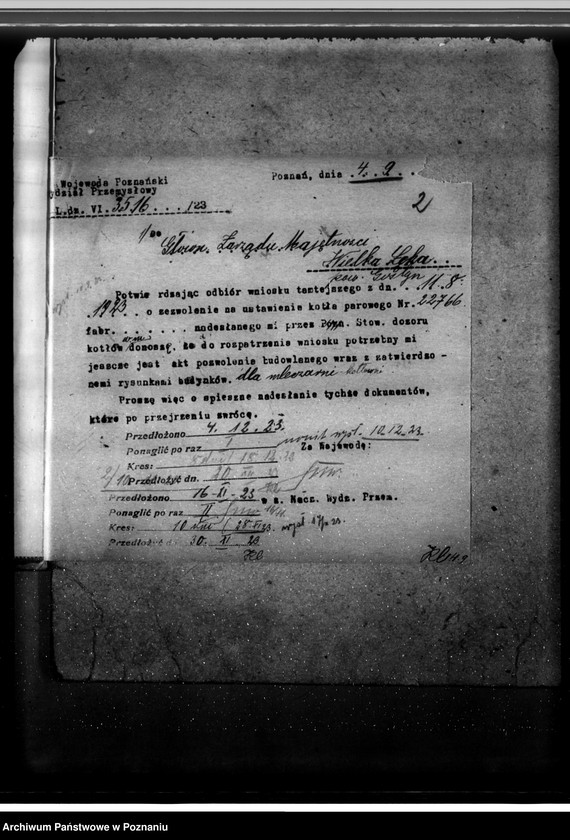 Wojewoda Poznański
ydział Przemysłowy
L.dz. VI. 3516 . . . /23
Poznań, dnia . 4. 9. . .
2
Główn. Zarządu Majętności
Wielka Łęka.
pow. Gostyn
Potwierdzając odbiór wniosku tamtejszego z dn. . 11.8.
.1923. . o zezwolenie na ustawienie kotła parowego Nr. 22766
fabr. . . . . . . . nadesłanego mi przez Stow. dozoru
kotłów donoszę, że do rozpatrzenia wniosku potrzebny mi
jeszcze jest akt pozwolenia budowlanego wraz z zatwierdzo -
nemi rysunkami budynków. dla mleczarni
Proszę więc o spieszne nadesłanie tychże dokumentów,
które po przejrzeniu zwrócę.
Przedłożono 4. 12. 23.
Ponaglić po raz 1 monit wysł. 10.12.23.
Za Wojewodę:
Kres: 18.12.23
Przedłożyć dn. 20 XII 23
Przedłożono 16-XI-23
w z. Nacz. Wydz. Przem.
Ponaglić po raz II
Kres: 10 dni / 28.XI 23. wysł 17/XI 23.
Przedłożyć d 30. XI 23